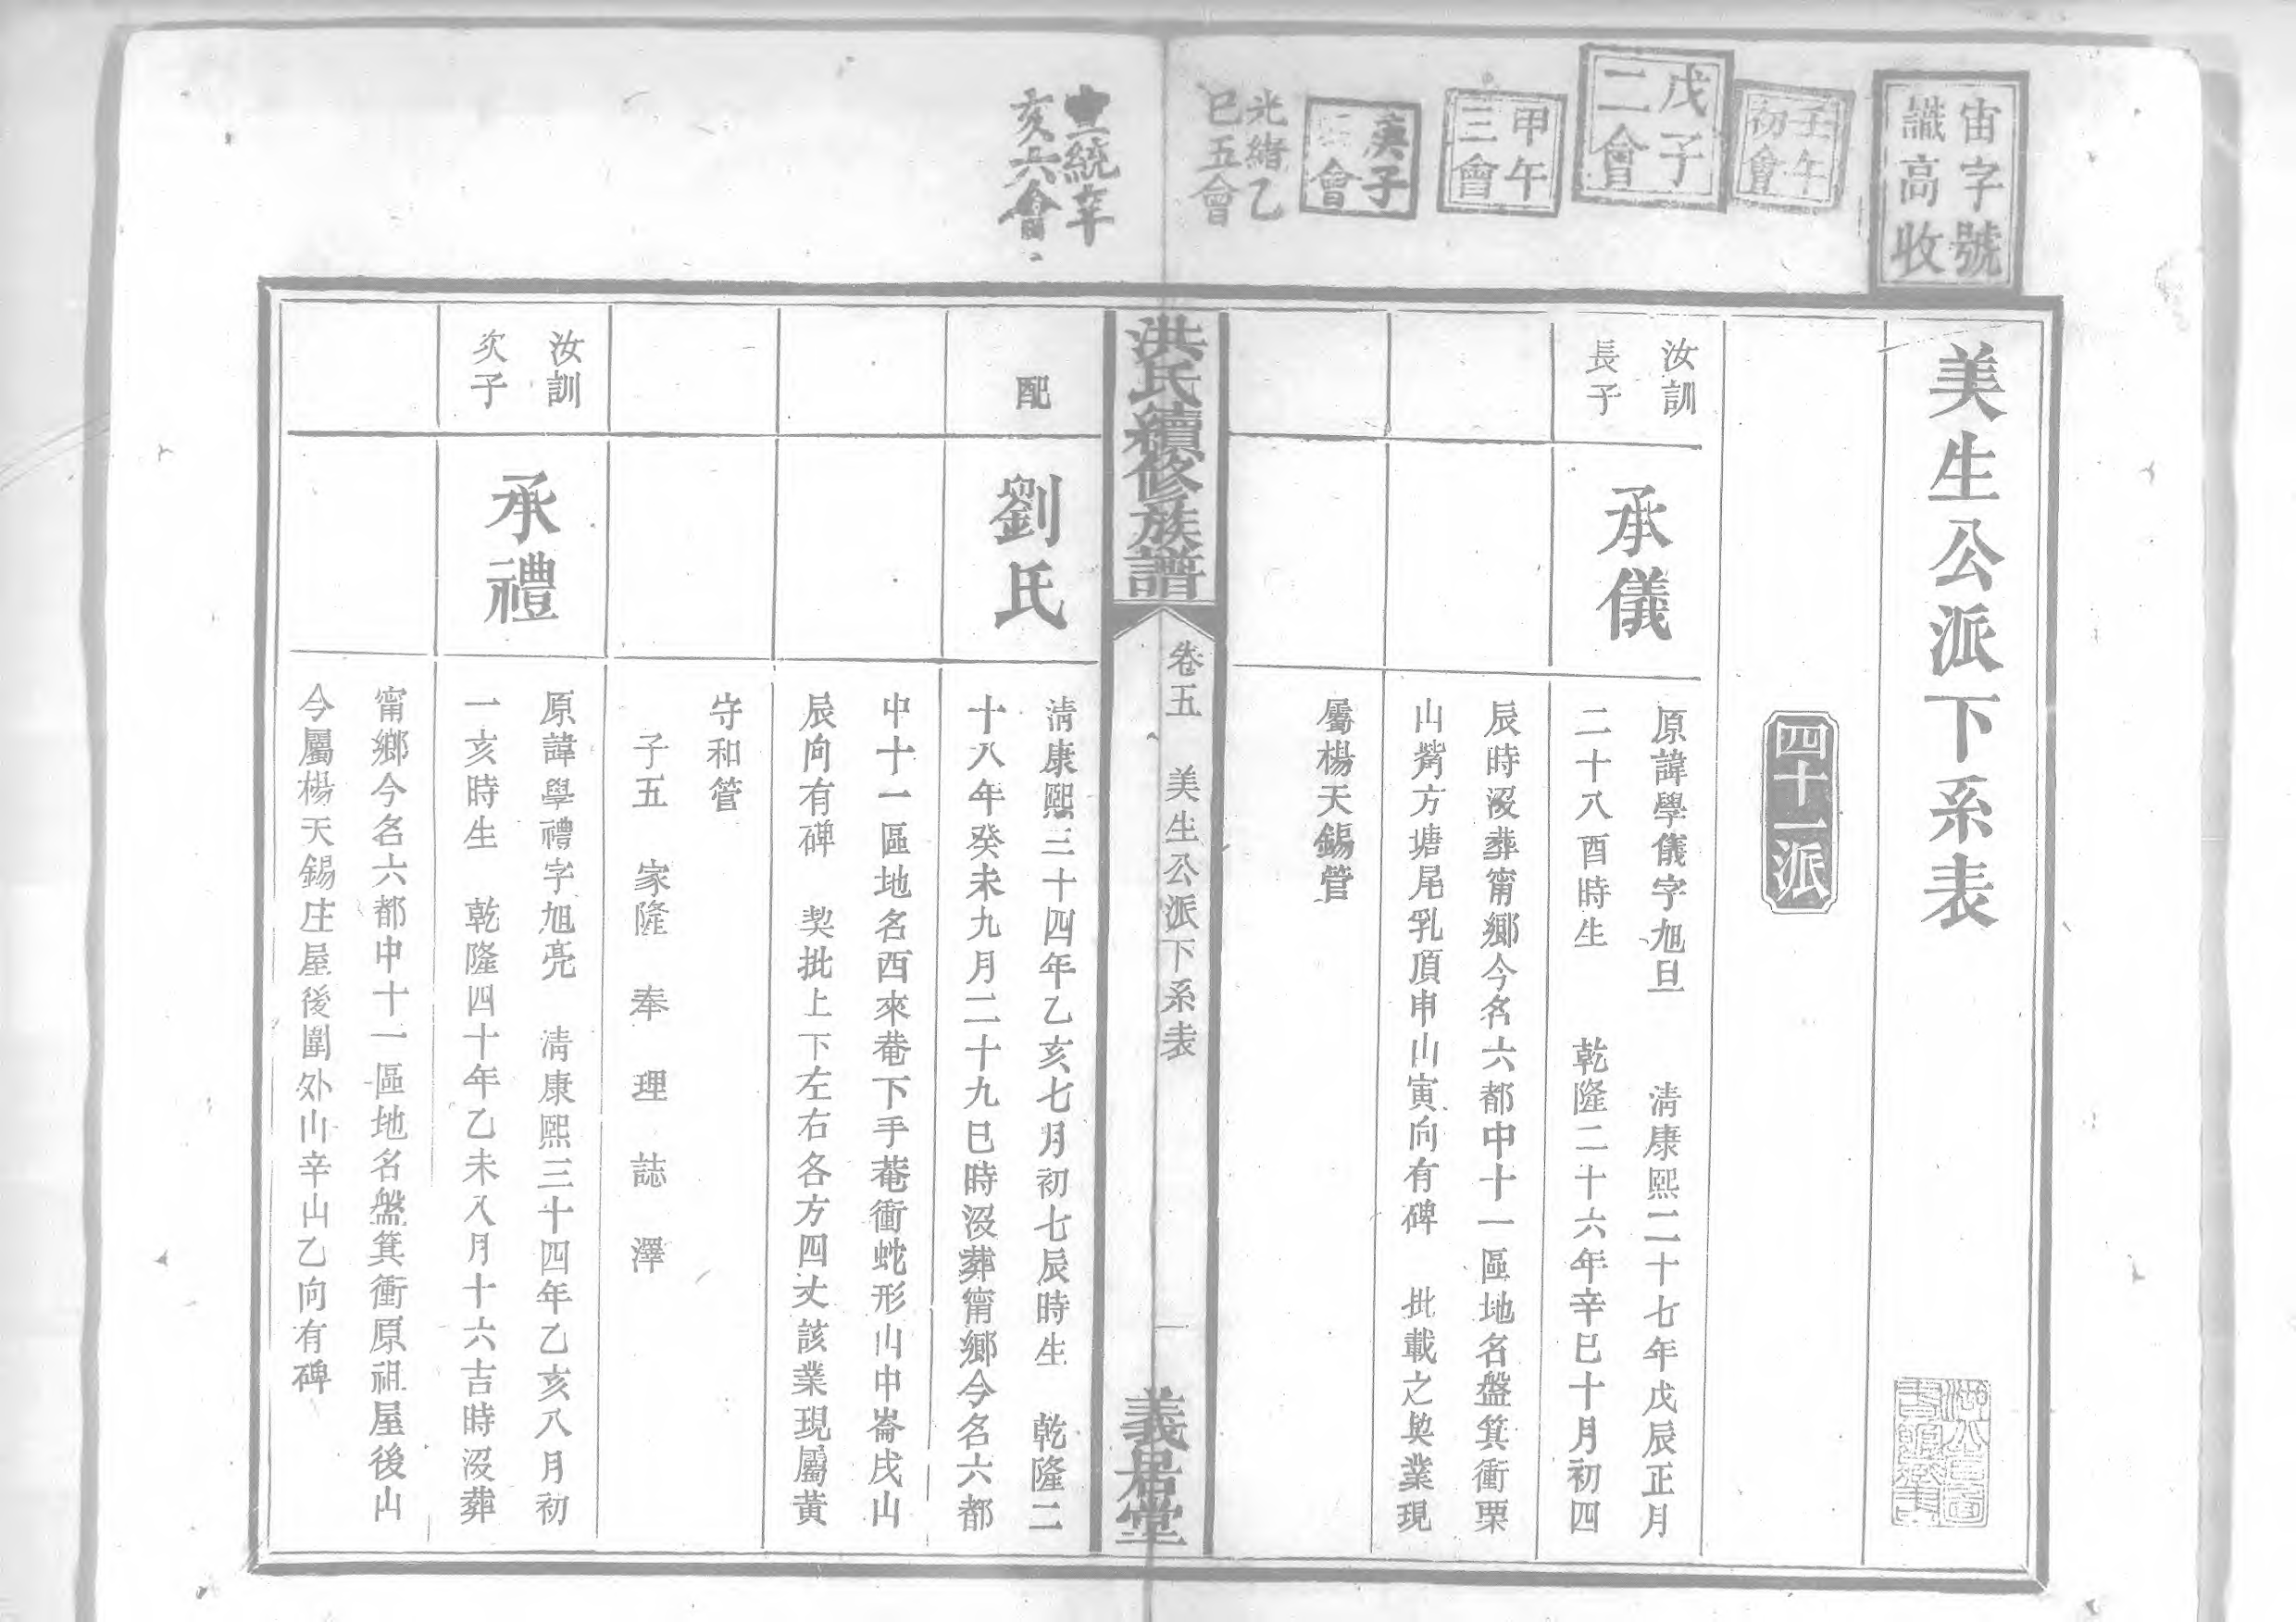 宙字號
識高收
壬午
初會
戊子
二會
甲午
三會
庚子
會
光緒乙
巳五會
宣統辛
亥六會
美生公派下系表
四十一派
汝訓
長子
承儀
原諱學儀字旭旦　清康熙二十七年戊辰正月
二十八酉時生　乾隆二十六年辛巳十月初四
辰時沒葬甯鄉今名六都中十一區地名盤箕衝栗
山觜方塘尾乳頂申山寅向有碑　批載之契業現
屬楊天錫管
洪氏續修族譜
卷五　美生公派下系表
一
義居堂
配
劉氏
清康熙三十四年乙亥七月初七辰時生　乾隆二
十八年癸未九月二十九巳時沒葬甯鄉今名六都
中十一區地名西來菴下手菴衝蛇形山中崙戌山
辰向有碑　契批上下左右各方四丈該業現屬黃
守和管
子五　家隆　奉　理　誌　澤
汝訓
次子
承禮
原諱學禮字旭亮　清康熙三十四年乙亥八月初
一亥時生　乾隆四十年乙未八月十六吉時沒葬
甯鄉今名六都中十一區地名盤箕衝原祖屋後山
今屬楊天錫庄屋後圍外山辛山乙向有碑